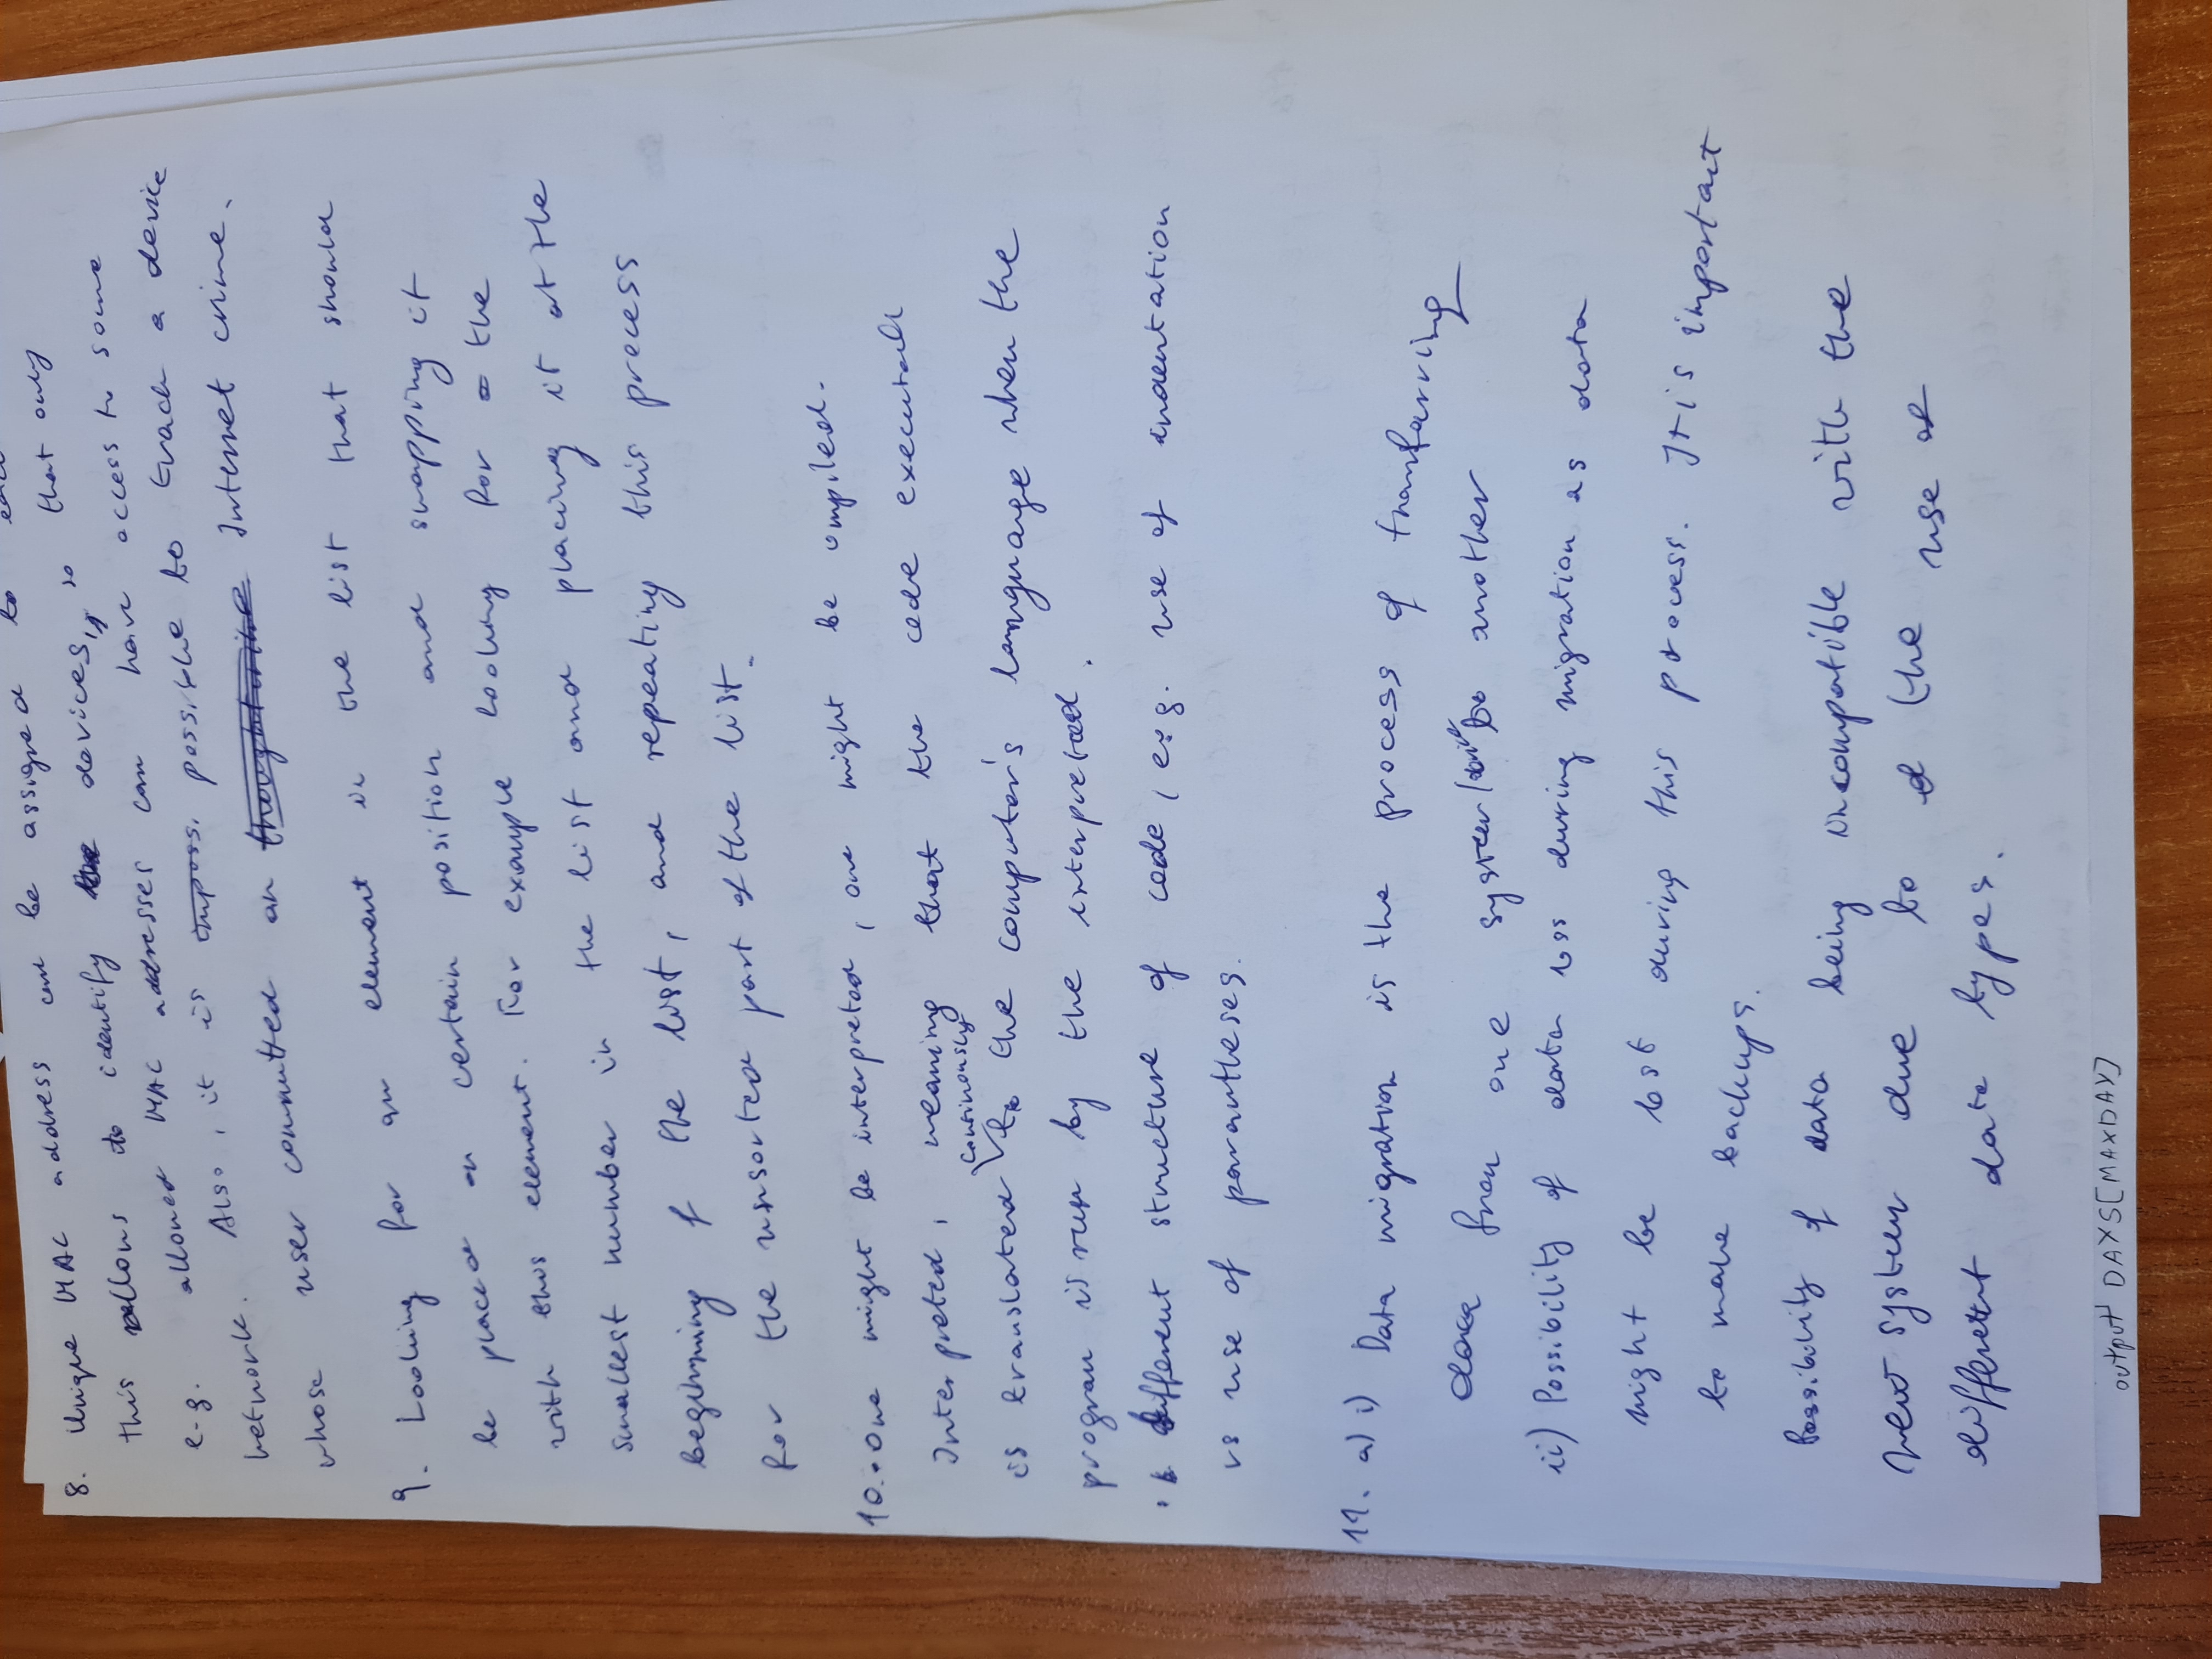 8. Unique MAC address can be assigned to
this allows to identify devices, so that only
e.g. allowed MAC addresses can have access to some
network. Also, it is imposs. possible to track a device
whose user committed an Internet crime.
9. Looking for an element in the list that should
be placed on certain position and swapping it
with this element. For example looking for the
smallest number in the list and placing it at the
beginning of the list, and repeating this process
for the unsorted part of the list.
10. • One might be interpreted, one might be ompiled.
Interpreted, meaning that the code executed
continously
is translated to the computer's language when the
program is run by the interpreted.
• different structure of code, e.g. use of indentation
vs use of parantheses.
11. a) i) Data migration is the process of transfarring
data from one system/device to another
ii) Possibility of data loss during migration as data
might be lost during this process. It is important
to make backups.
Possibility of data being incompatible with the
new system due to the use of
different date types.
output DAYS[MAXDAY]